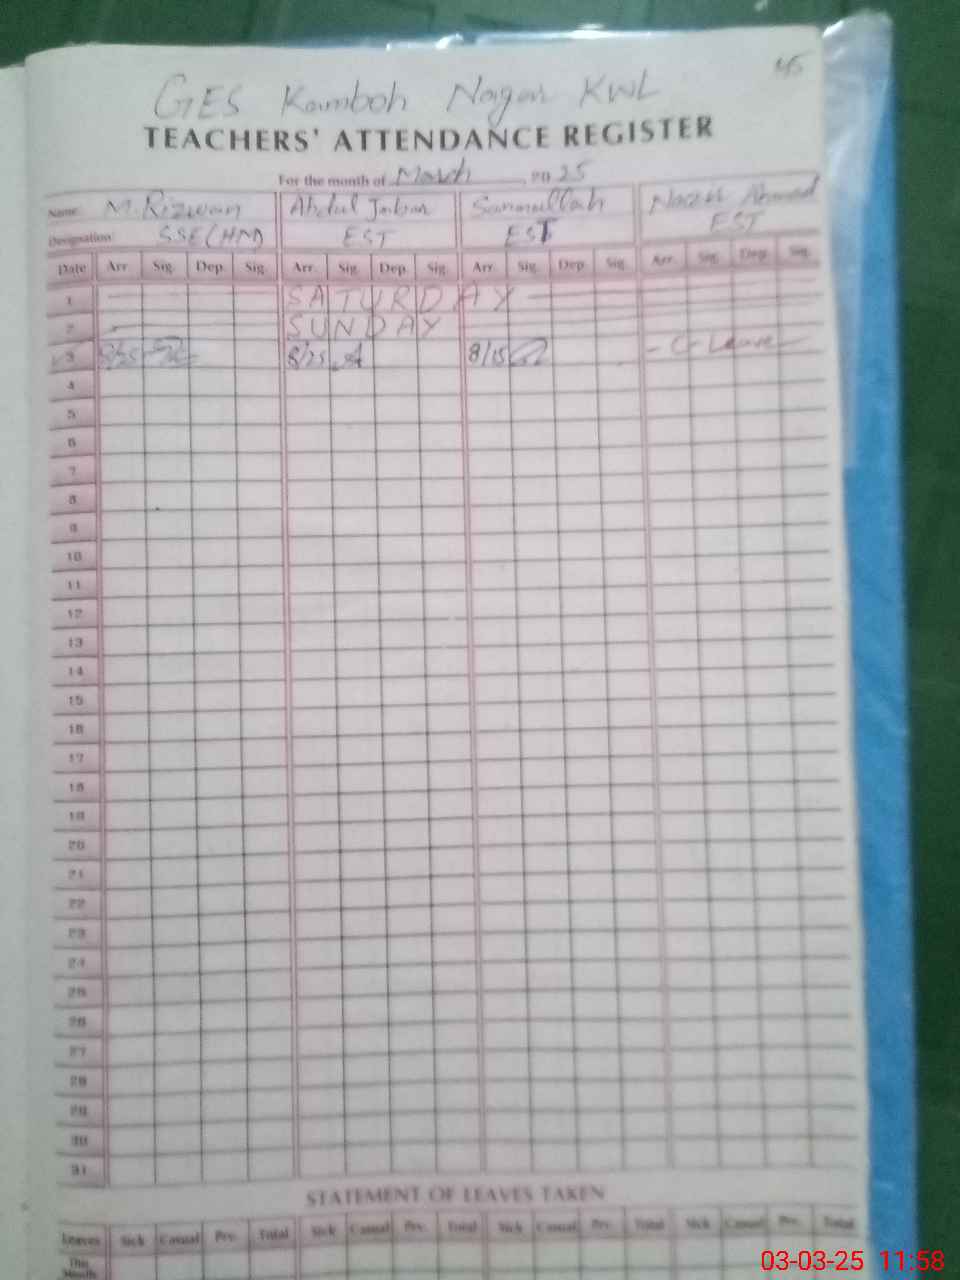 45
GES Kamboh Nagar KWL
TEACHERS' ATTENDANCE REGISTER
For the month of March, 2025
Name: M. Rizwan Abdul Jabbar Sanaullah Nazir Ahmad
Designation: SSE(HM) EST EST EST
Date Arr. Sig. Dep. Sig. Arr. Sig. Dep. Sig. Arr. Sig. Dep. Sig. Arr. Sig. Dep. Sig.
1 SATURDAY
2 SUNDAY
3 8/25 8/25 8/15 C-Leave
4
5
6
7
8
9
10
11
12
13
14
15
16
17
18
19
20
21
22
23
24
25
26
27
28
29
30
31
STATEMENT OF LEAVES TAKEN
Leaves Sick Casual Prv. Total Sick Casual Prv. Total Sick Casual Prv. Total Sick Casual Prv. Total
This
Month
03-03-25 11:58